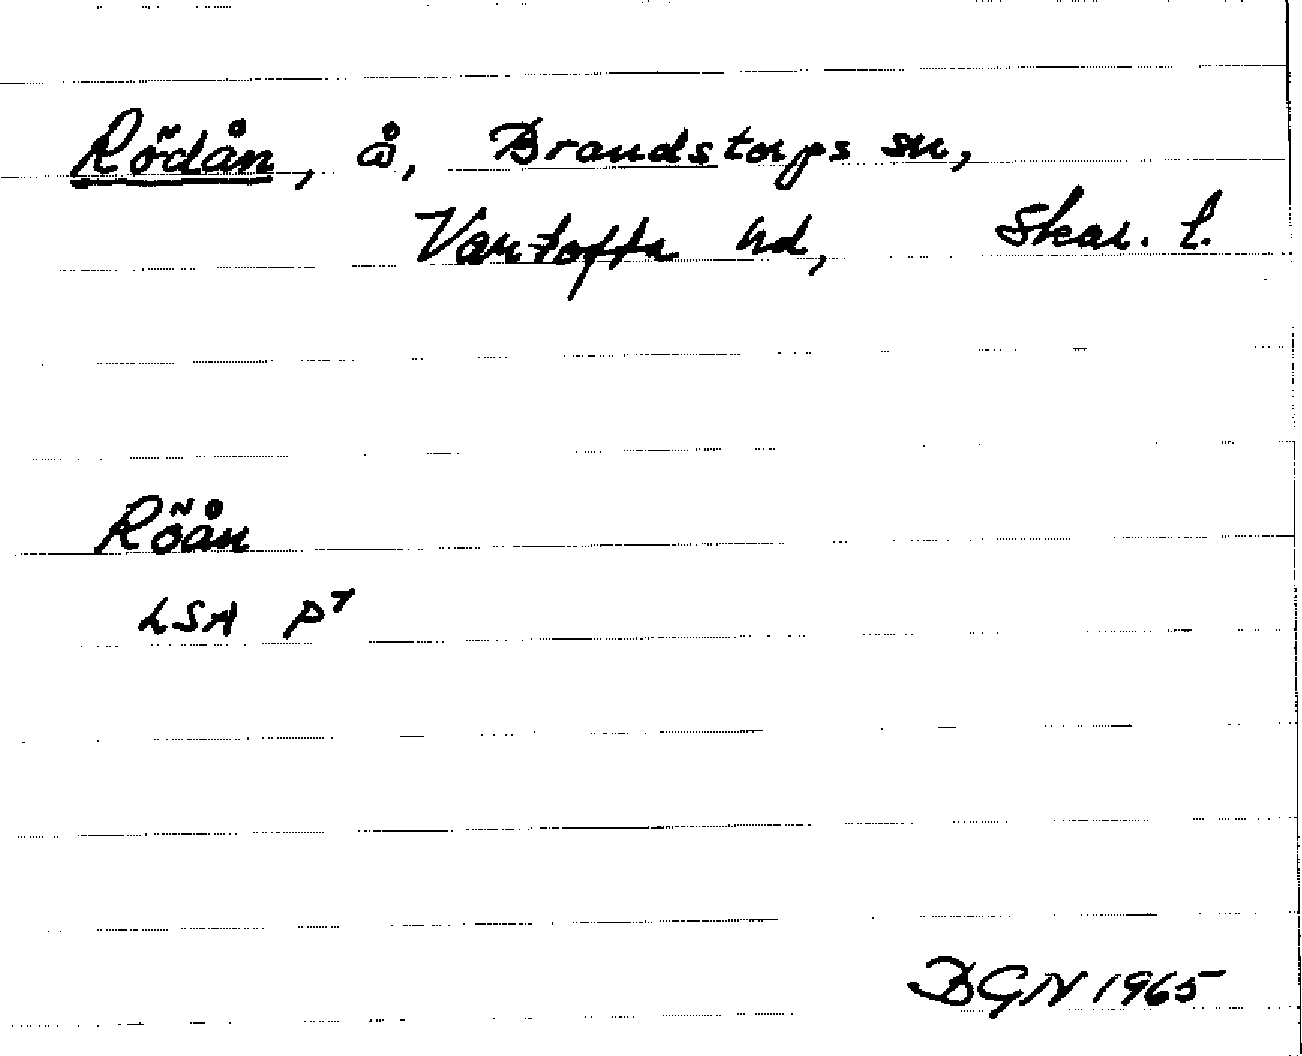 Rödån, å, Brandstorps sn,
Vartofta hd, Skar. l.
Röån
LSA P7
BGN 1965